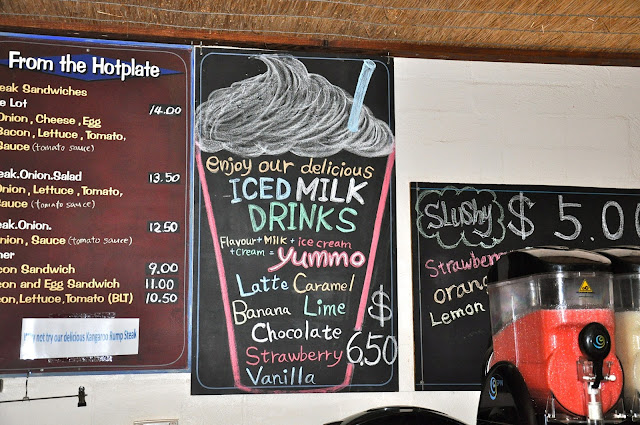 From the Hotplate
Steak Sandwiches
The Lot 14.00
Onion, Cheese, Egg
Bacon, Lettuce, Tomato,
Sauce (tomato sauce)
Steak.Onion.Salad 13.50
Onion, Lettuce, Tomato,
Sauce (tomato sauce)
Steak.Onion. 12.50
Onion, Sauce (tomato sauce)
Bacon Sandwich 9.00
Bacon and Egg Sandwich 11.00
Bacon, Lettuce, Tomato (BLT) 10.50
not try our delicious Kangaroo Rump Steak
enjoy our delicious
ICED MILK
DRINKS
Flavour + Milk + ice cream
+ Cream = yummo
Latte Caramel
Banana Lime
Chocolate
Strawberry
Vanilla
$6.50
Slushy $5.00
Strawberry
Orange
Lemon